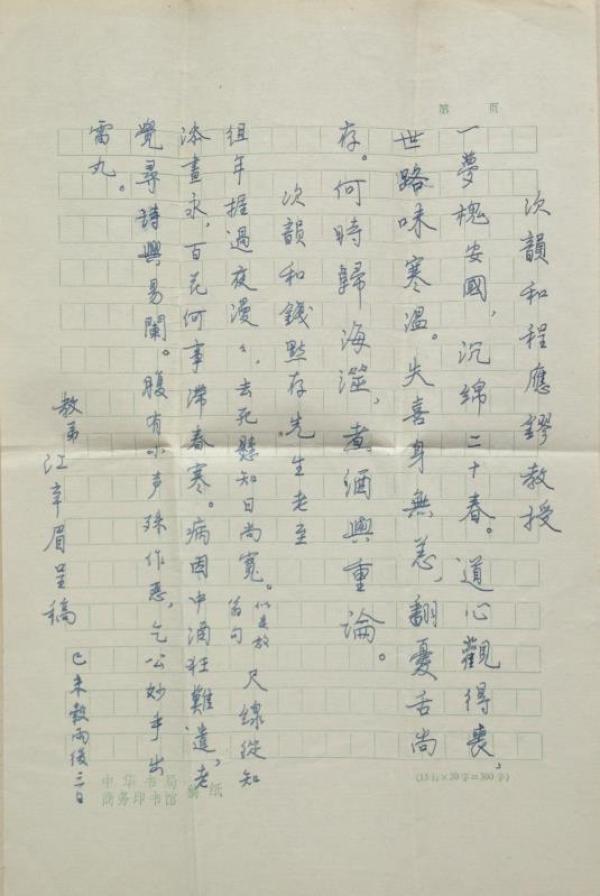 第　页
次韻和程應鏐教授
一夢槐安國，沉綿二十春。道心觀得喪，
世路味寒温。失喜身無恙，翻憂舌尚
存。何時歸海澨，煮酒與重論。
次韻和錢默存先生老至
徂年捱過夜漫〻，去死懸知日尚寬。
放翁句
尺線從知
添晝永，百花何事滯春寒。病因中酒狂難遣，老
覺尋詩興易闌。腹有小声殊作惡，乞公妙手出
雷丸。
教弟江辛眉呈稿
己未穀雨後三日
中华书局
商务印书馆　稿纸
(15行×20字=300字)